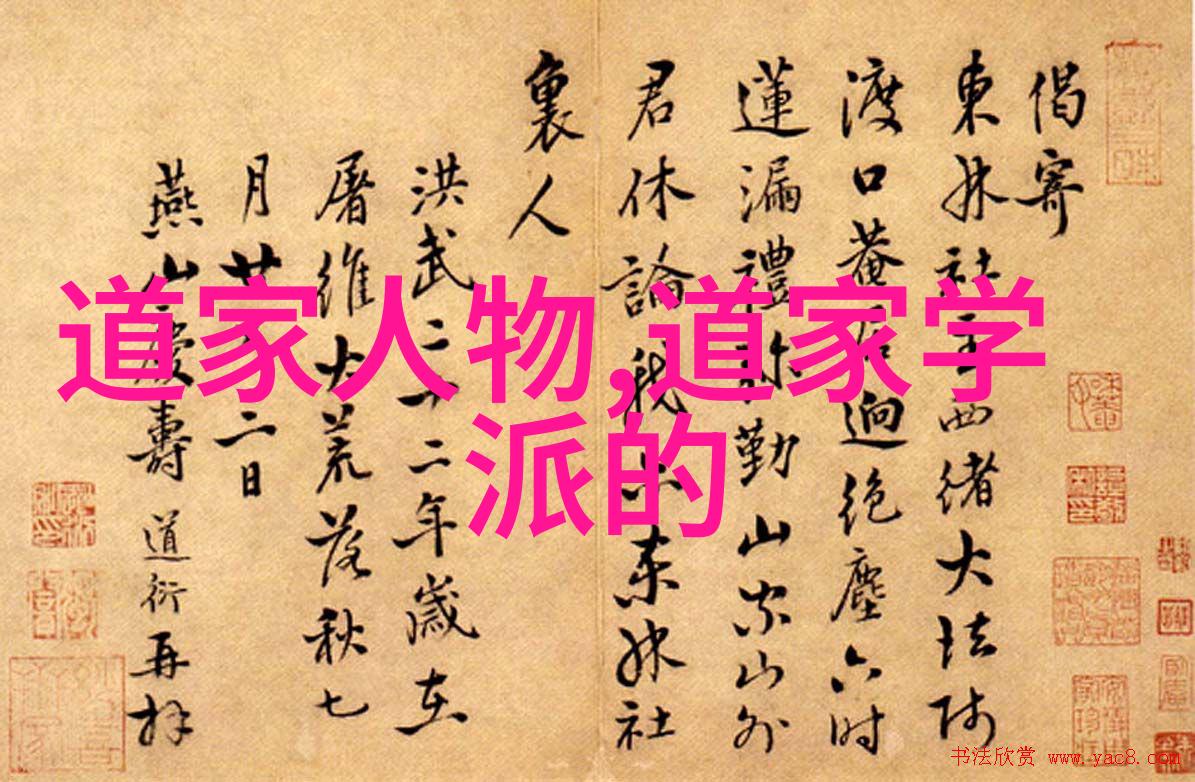 偈寄
東林社主西緒大法師
渡口菴居迥絶塵六時
蓮漏禮弥勤山家山外
君休論我亦東林社
裏人
洪武二十二年歲在
屠維大荒落秋七
月廿二日
燕山慶壽道衍再拜
道家人物,道家学
派的
书法欣赏 www.yac8.com